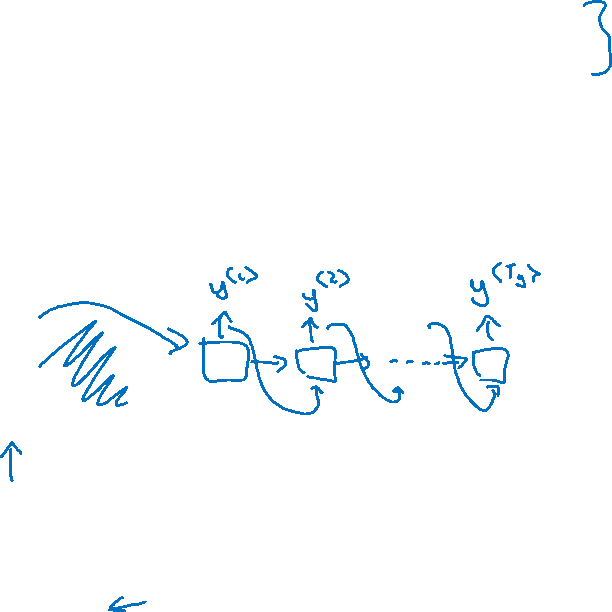 }
y⟨1⟩ y⟨2⟩ y⟨Ty⟩